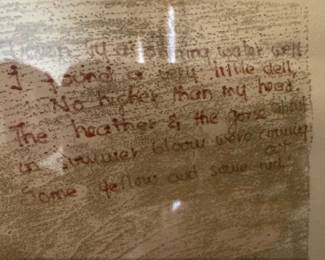 Down by a shining water well
I found a very little dell,
No higher than my head.
The heather & the gorse about
in summer bloom were coming out
Some yellow and some red.